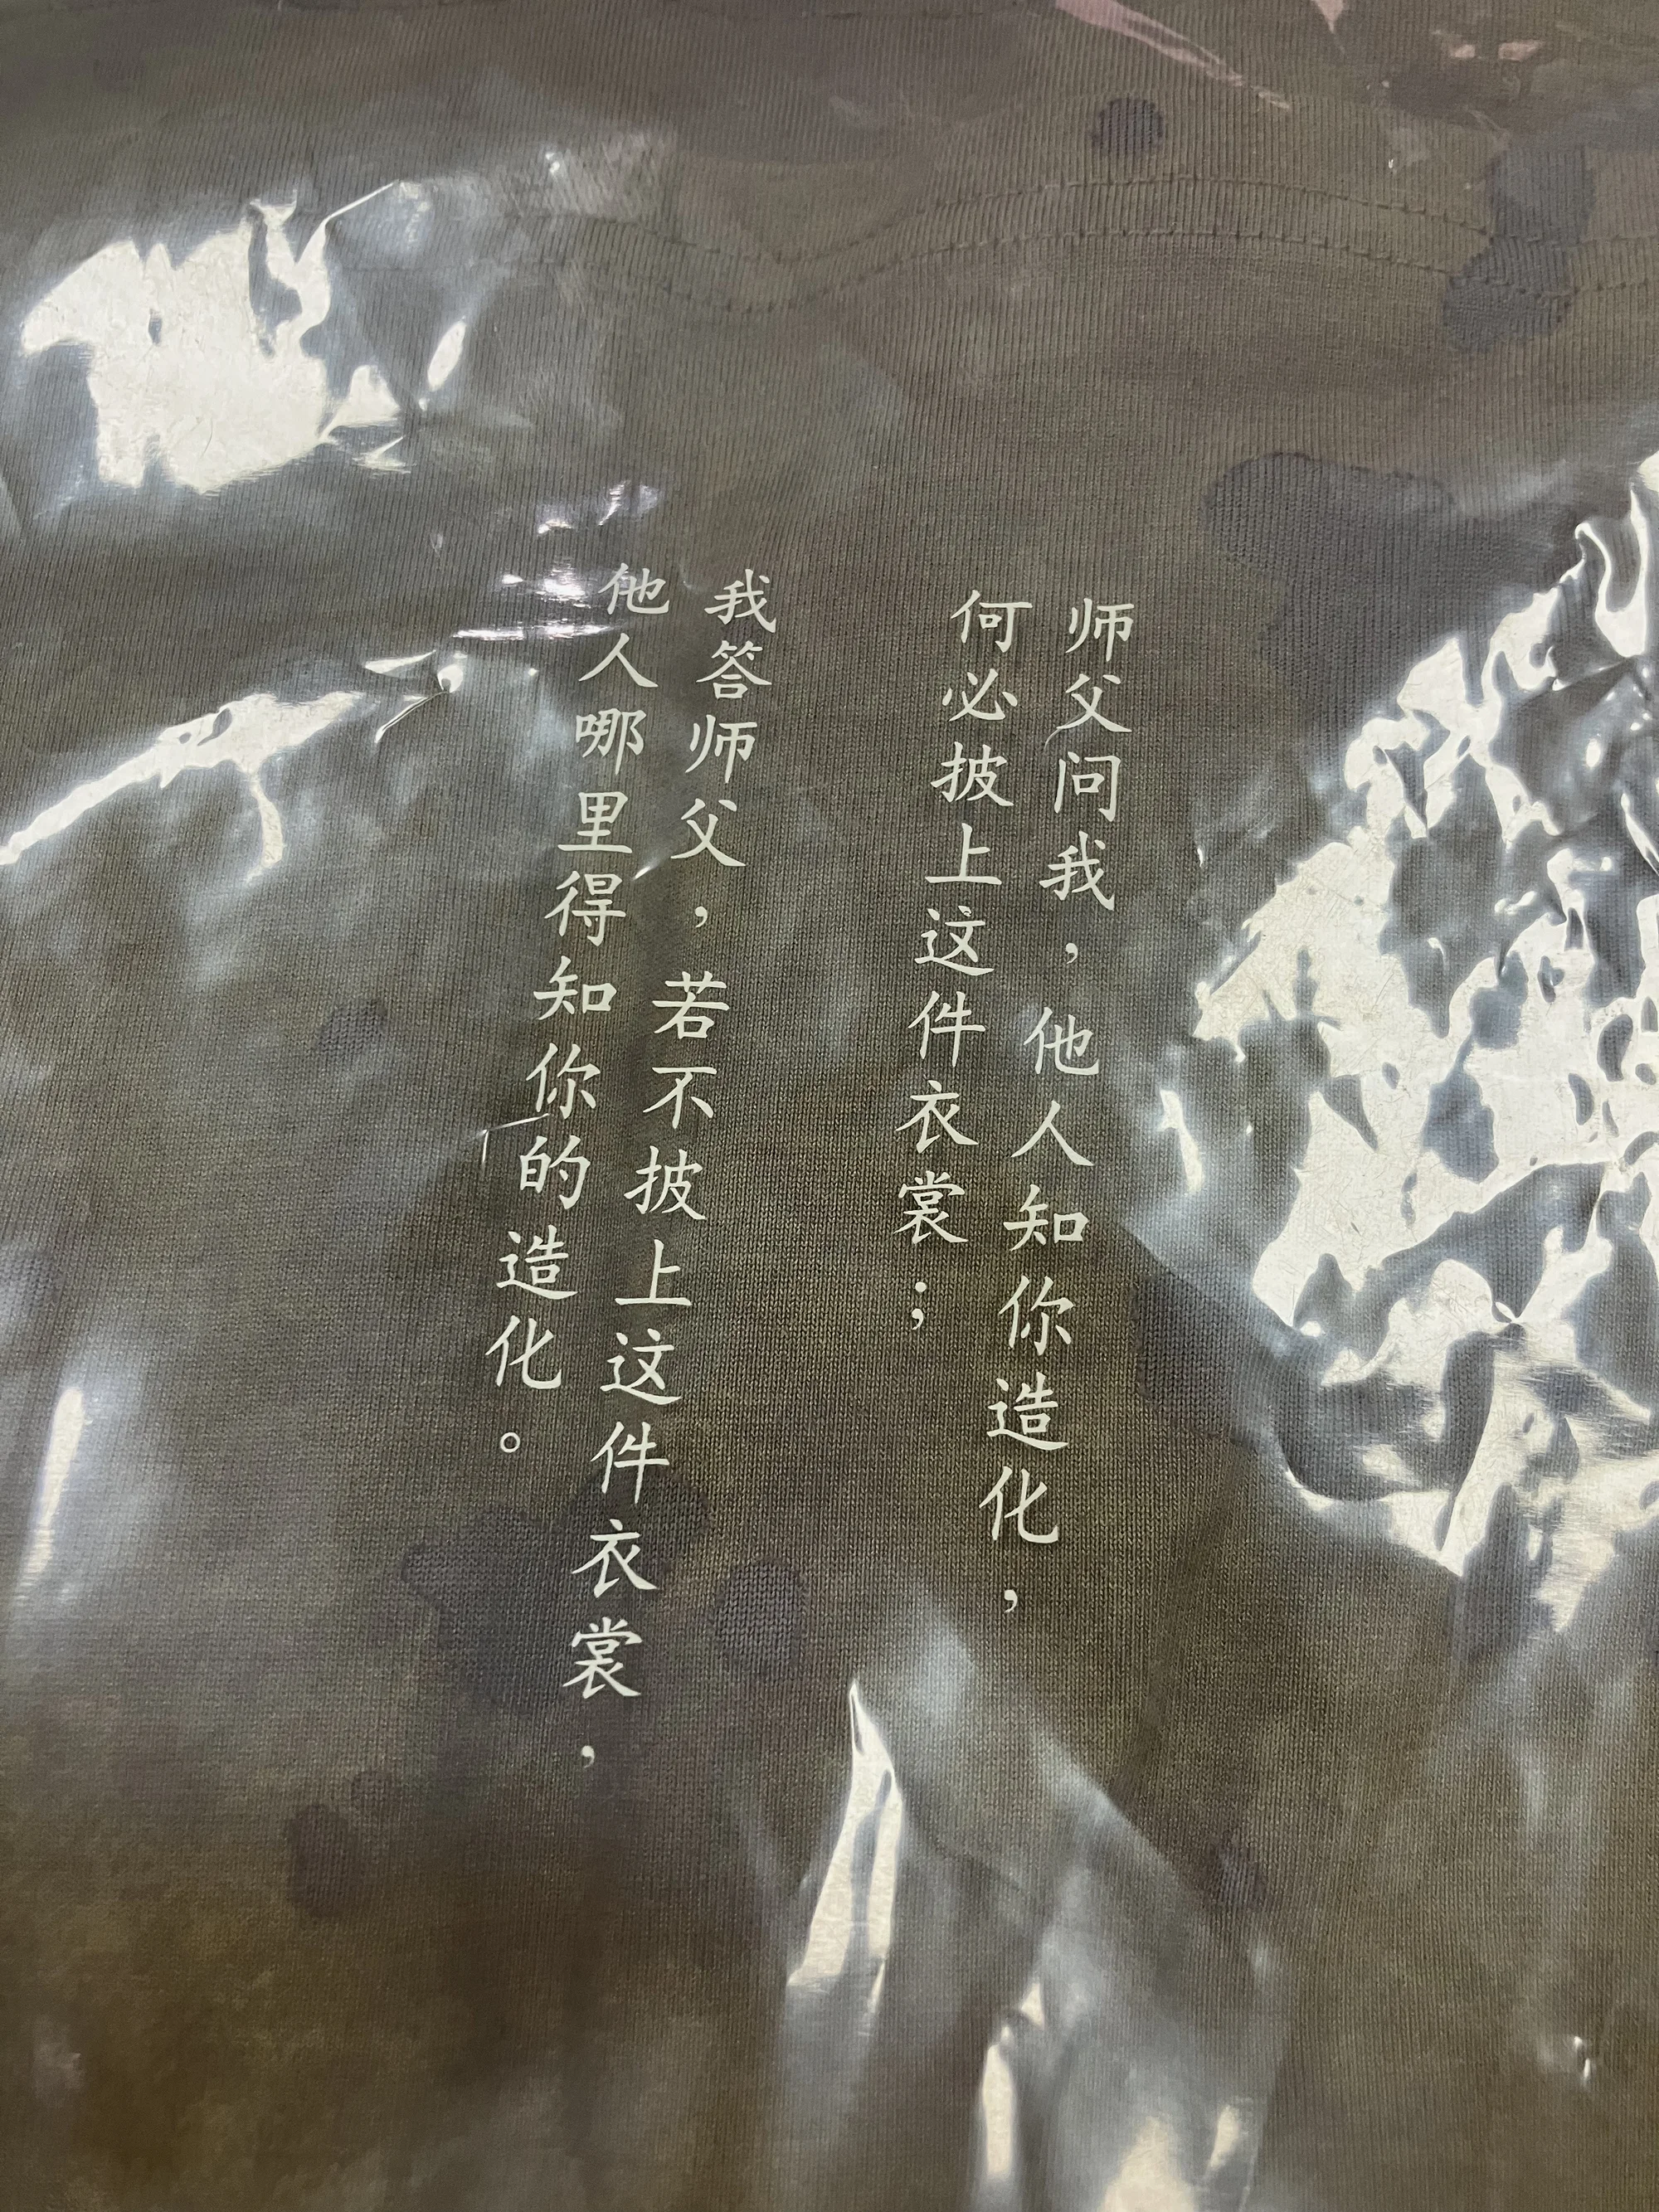 师父问我，他人知你造化，
何必披上这件衣裳；
我答师父，若不披上这件衣裳，
他人哪里得知你的造化。